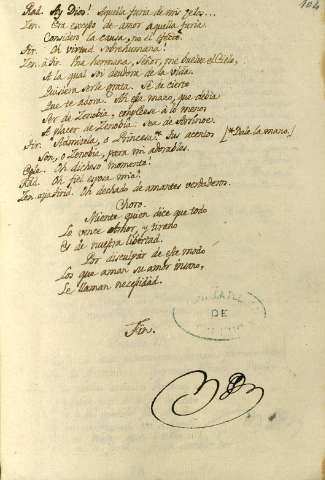 104
Rad. Ay Dios! Aquella furia de mis zelos...
Zen. Era exceso de amor aquella furia
Considera la causa, no el efecto.
Tir. Oh virtud sobrehumana!
Zen. à Tir. Una hermana, Señor, me buelve el Cielo,
A la qual soi deudora de la vida.
Quisiera serla grata. Sé de cierto
Que te adora. Aquesta mano, que debia
Ser de Zenobia, empleese à lo menos
A placer de Zenobia. Sea de Arsinoe.
Tir. Admirela, o Princesa. Sus acentos [Dala la mano.]
Son, o Zenobia, para mi adorables.
Egle. Oh dichoso momento!
Rad. Oh fiel esposa mia!
Zen. Oh dechado de amantes verdaderos.
Choro.
Miente quien dice que todo
Lo vence Amor, y tirano
Es de nuestra libertad.
Por disculpar de este modo
Los que aman su amor insano,
Le llaman necesidad.
DE
Fin.